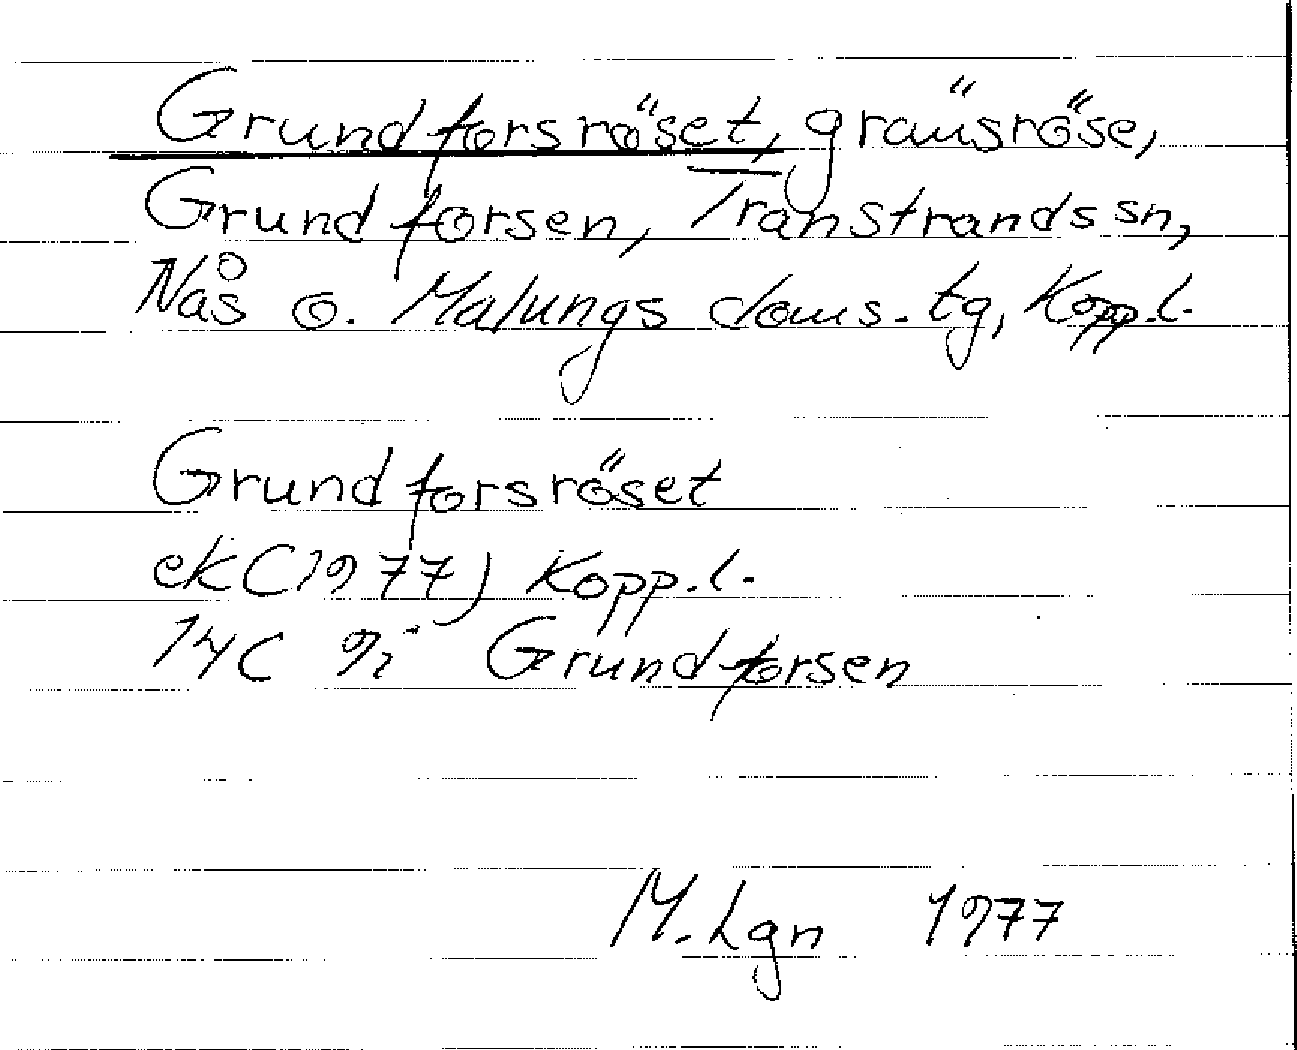 Grundforsröset, gränsröse,
Grundforsen, Transtrands sn,
Nås o. Malungs doms. tg, Kopp.l.
Grundforsröset
ek (1977) Kopp.l.
14C 9i Grundforsen
M. Lgn 1977